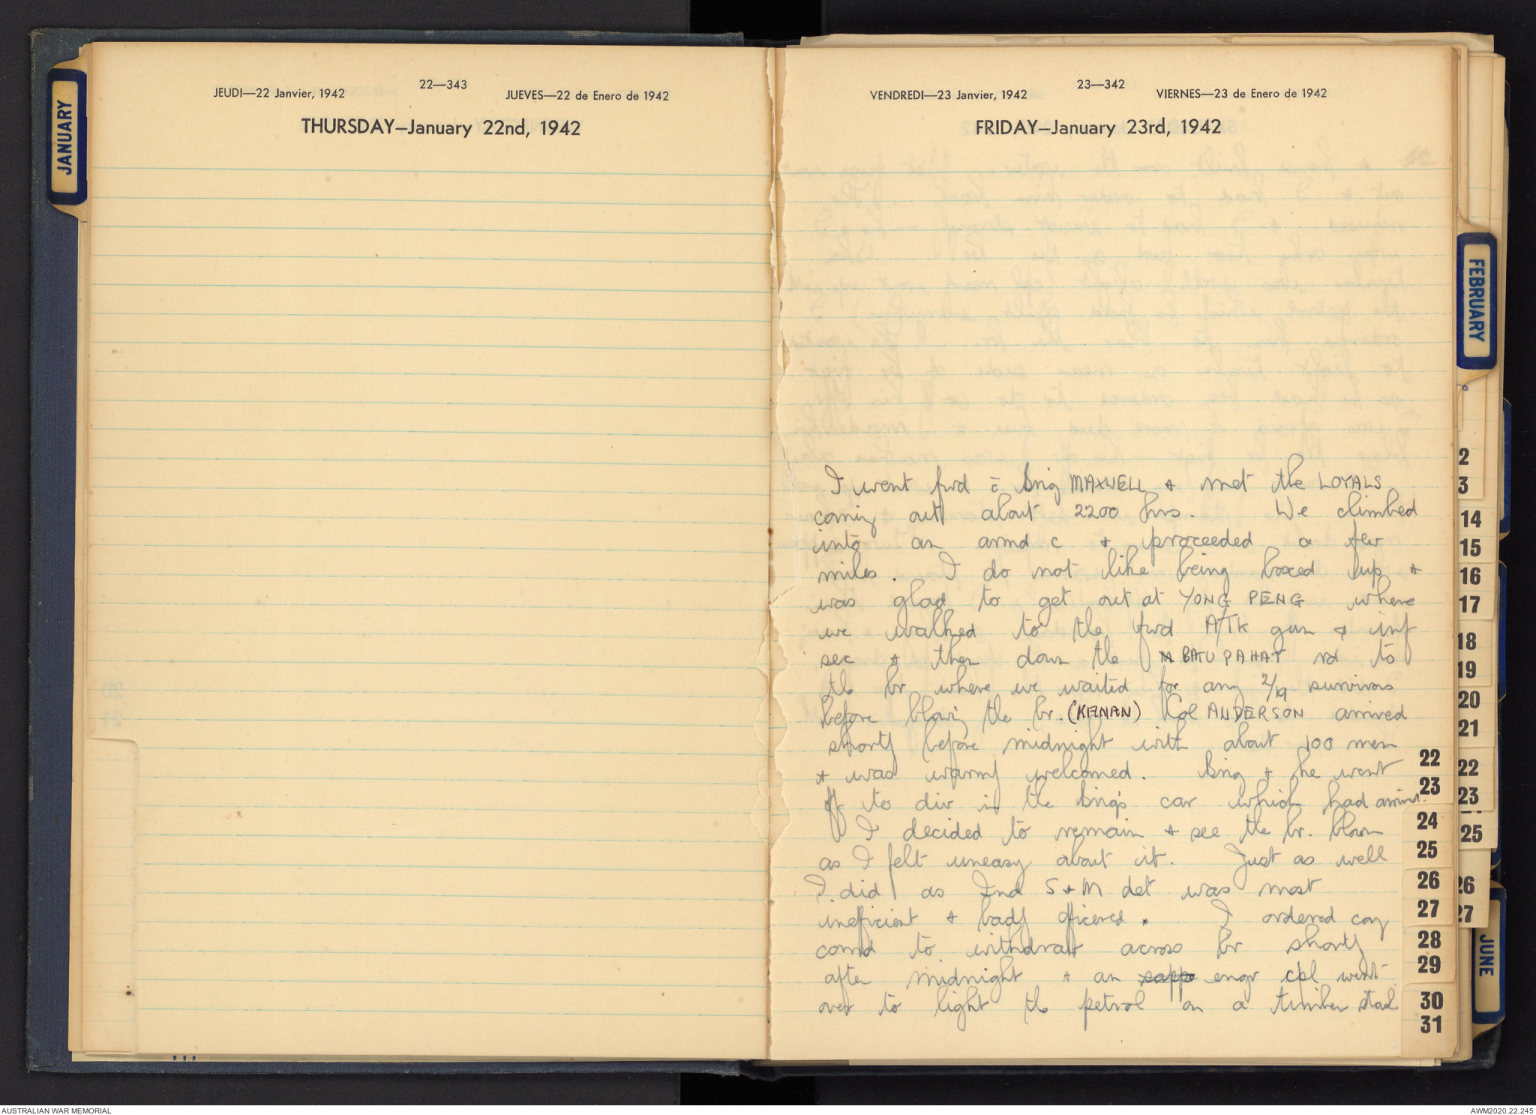 JANUARY
JEUDI—22 Janvier, 1942
22—343
JUEVES—22 de Enero de 1942
THURSDAY—January 22nd, 1942
VENDREDI—23 Janvier, 1942
23—342
VIERNES—23 de Enero de 1942
FRIDAY—January 23rd, 1942
I went fwd c̄ Brig MAXWELL & met the LOYALS
coming out about 2200 hrs. We climbed
into an armd c & proceeded a few
miles. I do not like being boxed up &
was glad to get out at YONG PENG where
we walked to the fwd A/TK gun & inf
sec & then down the BATU PAHAT rd to
the br where we waited for any 2/19 survivors
before blowing the br. (KANAN) Col ANDERSON arrived
shortly before midnight with about 100 men
& was warmly welcomed. Brig & he went
off to div in the brig's car which had arrived.
I decided to remain & see the br. blown
as I felt uneasy about it. Just as well
I did as Ind S & M det was most
inefficient & badly officered. I ordered coy
comd to withdraw across br shortly
after midnight & an sapp engr cpl went
over to light the petrol on a timber
FEBRUARY
2
3
14
15
16
17
18
19
20
21
22
23
25
26
27
22
23
24
25
26
27
28
29
30
31
JUNE
AUSTRALIAN WAR MEMORIAL
AWM2020.22.245